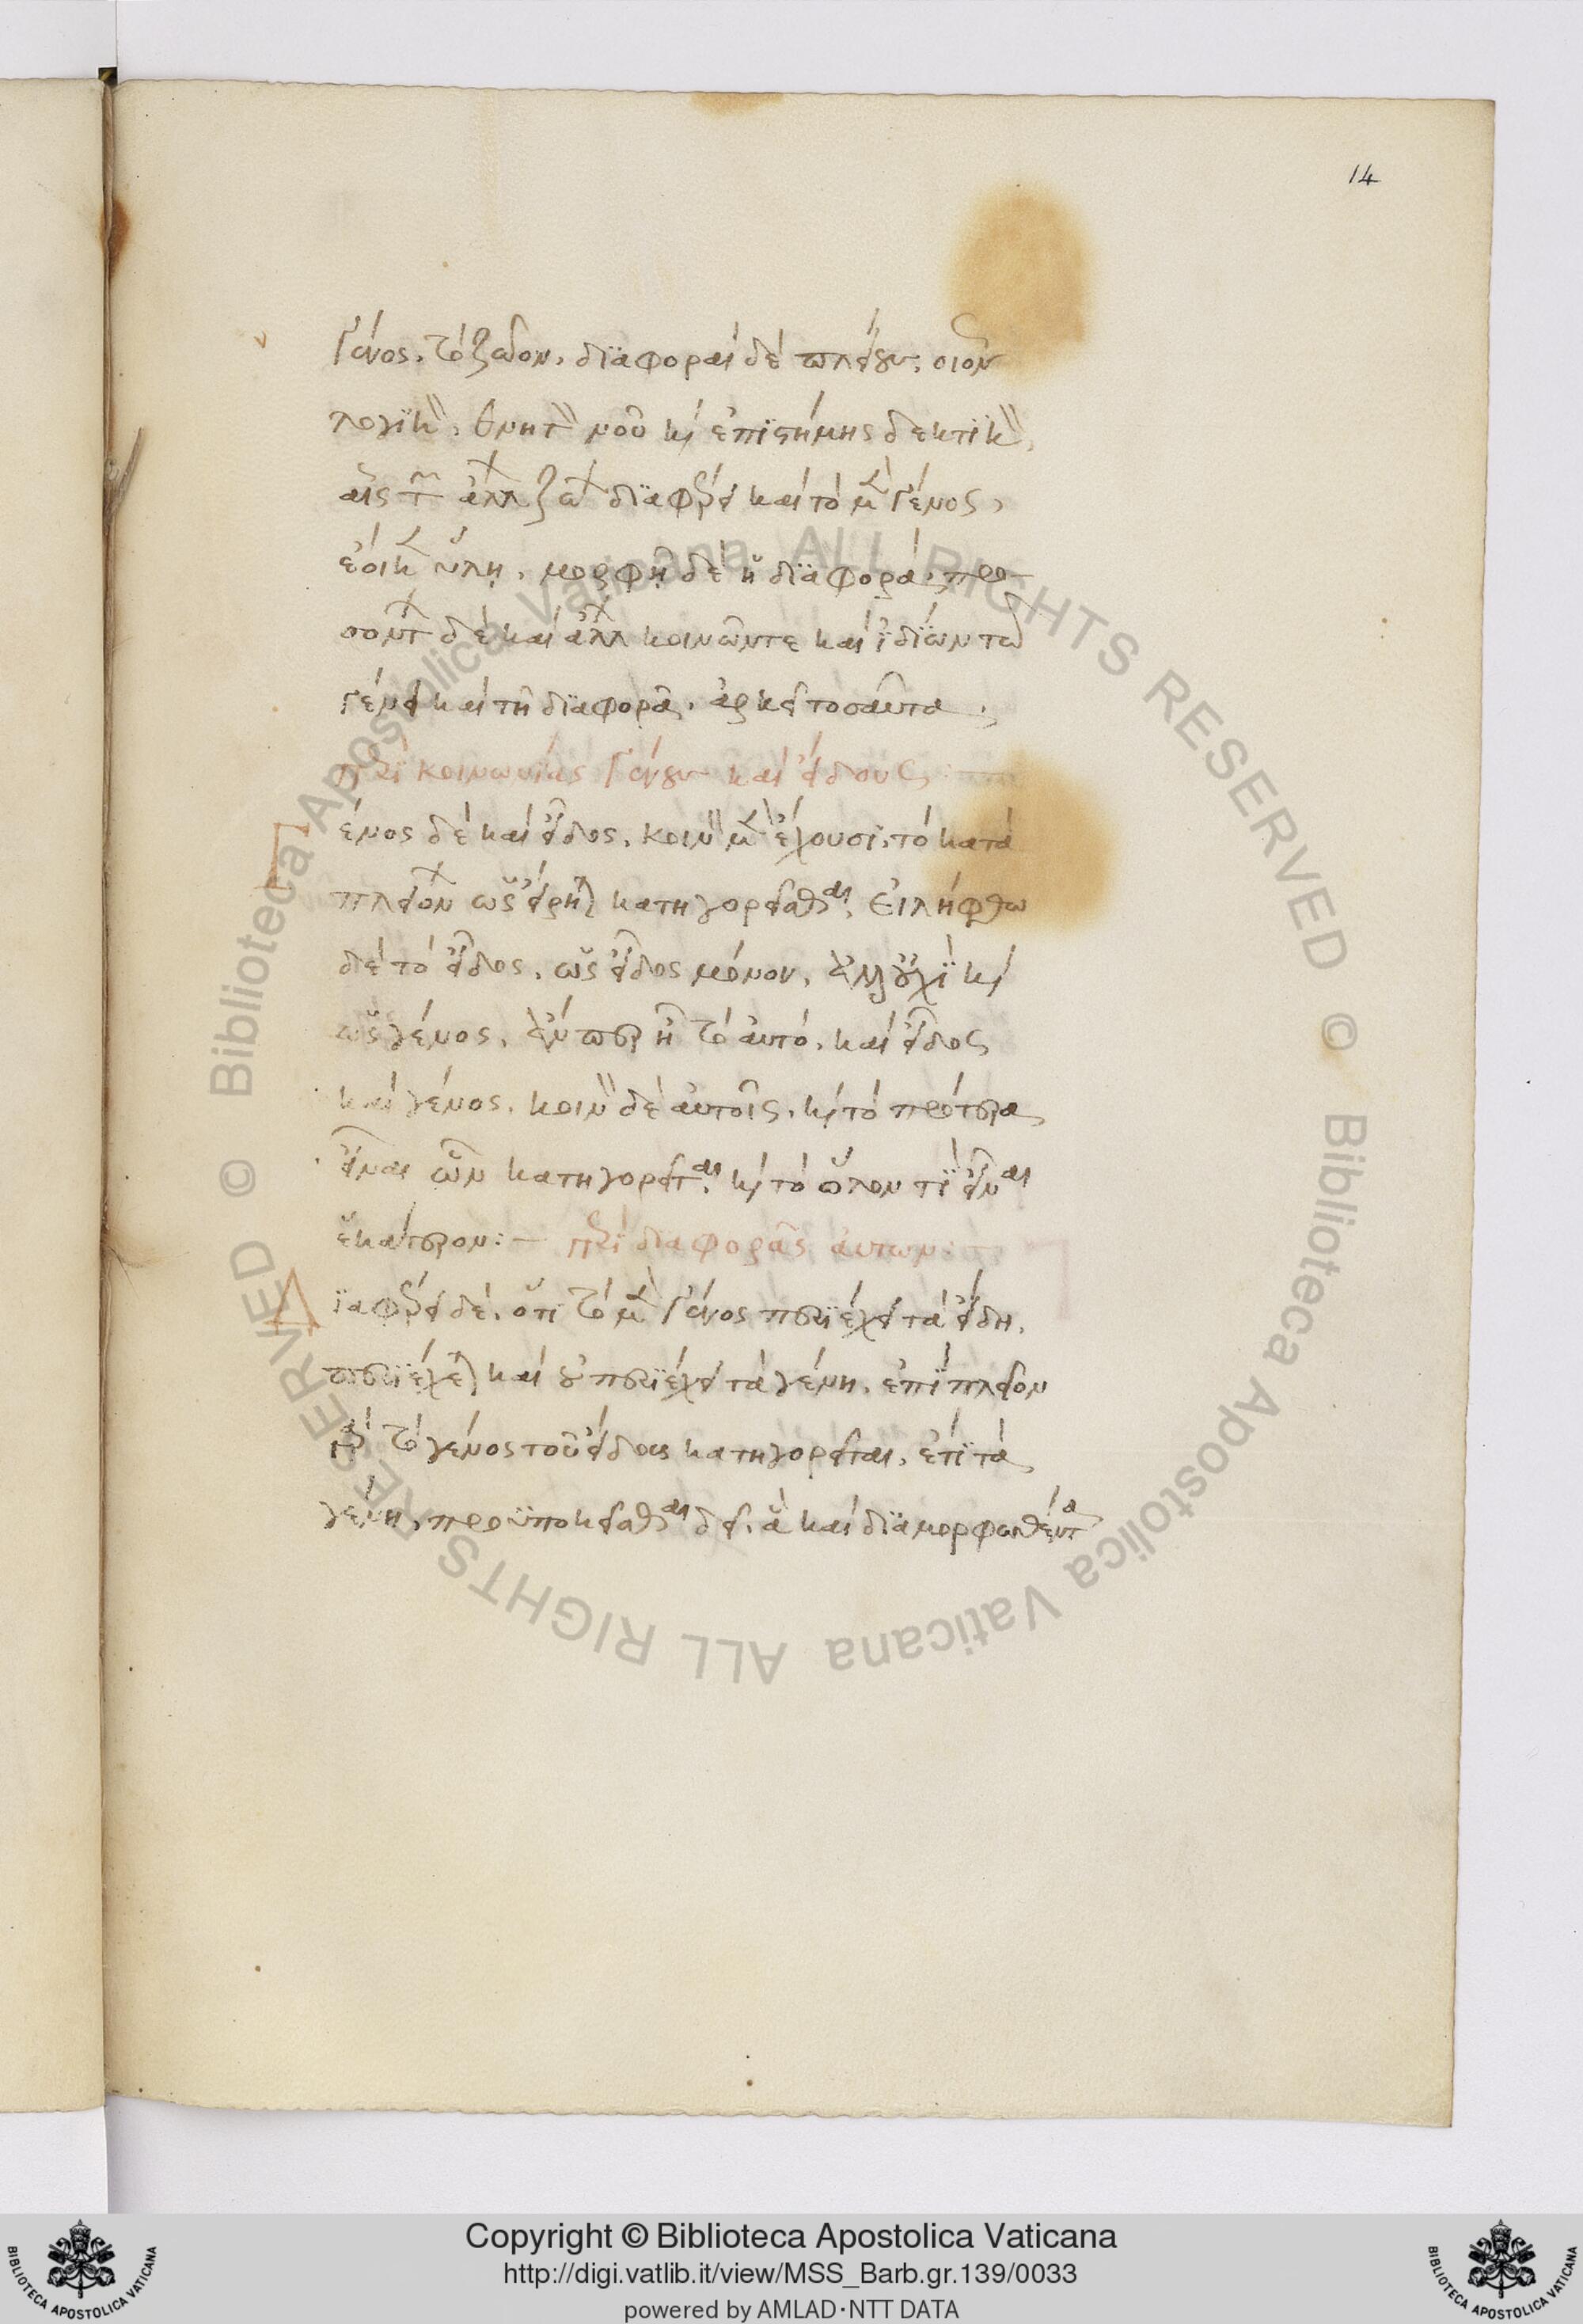 14
γένος, τὸ ζῶον, διαφοραὶ δὲ πλείους, οἷον
λογικὴ, θνητὴ νοῦ καὶ ἐπιστήμης δεκτικὴ,
αἷς τῶν ἄλλων ζώων διαφέρει καὶ τὸ μὲν γένος,
ἔοικεν ὕλῃ, μορφῇ δὲ ἡ διαφορά, προ-
σόντων δὲ καὶ ἄλλων κοινῶν τε καὶ ἰδίων τῶ
γένει καὶ τῇ διαφορᾷ, ἀρκεῖ τοσαῦτα.
περὶ κοινωνίας γένους καὶ εἴδους:
Γένος δὲ καὶ εἶδος, κοινὴν μὲν ἔχουσι, τὸ κατὰ
πλειόνων ὡς εἴρηται κατηγορεῖσθαι, Εἰλήφθω
δὲ τὸ εἶδος, ὡς εἶδος μόνον, ἀλλ' οὐχὶ καὶ
ὡς γένος, ἄνπερ ᾖ τὸ αὐτό, καὶ εἶδος
καὶ γένος, κοινὴ δὲ αὐτοῖς, καὶ τὸ πρότερα
εἶναι ὧν κατηγορεῖται, καὶ τὸ ὅλον τὶ εἶναι
ἑκάτερον:– περὶ διαφορᾶς αὐτῶν:
Διαφέρει δέ, ὅτι τὸ μὲν γένος περιέχει τὰ εἴδη,
περιέχεται καὶ οὐ περιέχει τὰ γένη, ἐπὶ πλεῖον
γὰρ τὸ γένος τοῦ εἴδους κατηγορεῖται, ἔτι τὰ
γένη, προϋποκεῖσθαι δεῖ, ἃ καὶ διαμορφωθέντα
Copyright © Biblioteca Apostolica Vaticana
http://digi.vatlib.it/view/MSS_Barb.gr.139/0033
powered by AMLAD·NTT DATA
BIBLIOTECA APOSTOLICA VATICANA
BIBLIOTECA APOSTOLICA VATICANA
© Biblioteca Apostolica Vaticana ALL RIGHTS RESERVED © Biblioteca Apostolica Vaticana ALL RIGHTS RESERVED